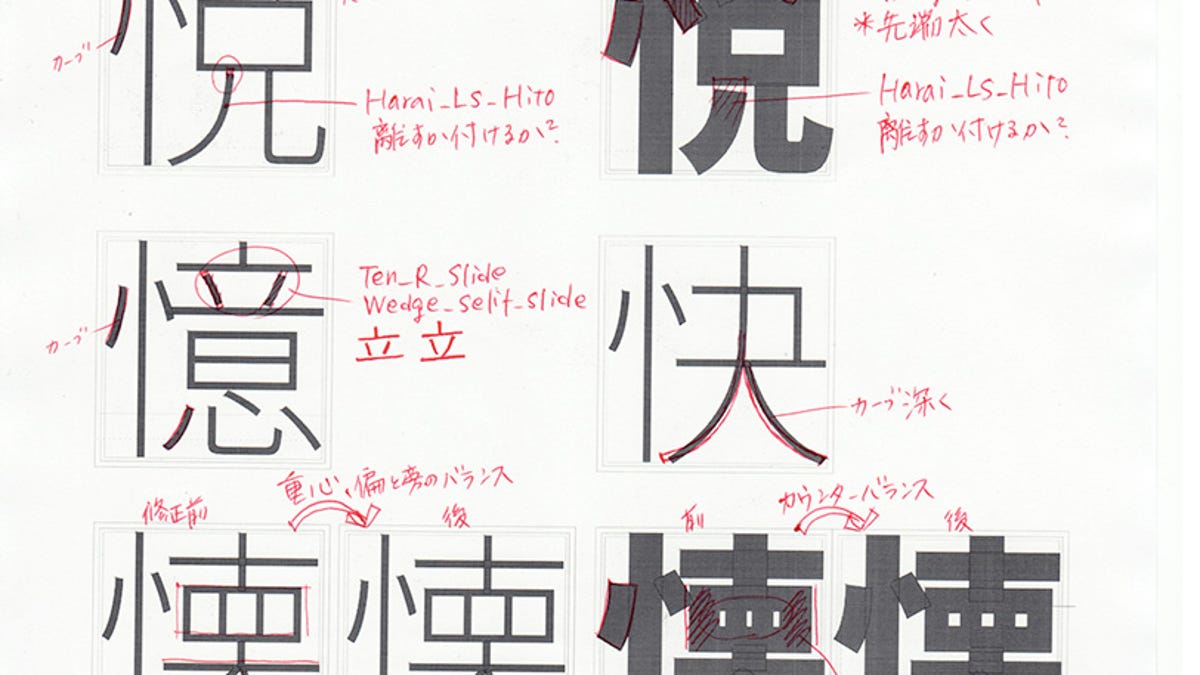 悦
カーブ
Harai_LS_Hito
離すか付けるか?
悦
*先端太く
Harai_LS_Hito
離すか付けるか?
憶
カーブ
Ten_R_Slide
Wedge_Selif_Slide
立 立
快
カーブ深く
重心、偏と旁のバランス
修正前
後
懐
懐
カウンターバランス
前
後
懐
懐